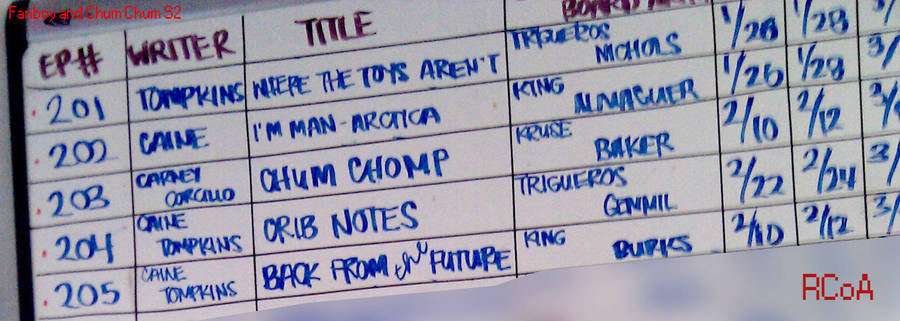 Fanboy and Chum Chum S2
EP# WRITER TITLE BOARD
201 TOMPKINS WHERE THE TOYS AREN'T TRIGUEROS NICHOLS 1/28 1/28 3/
202 CAINE I'M MAN-ARCTICA KING ALMAGUER 1/26 1/28 3/
203 CARNEY CORCILLO CHUM CHOMP KRUSE BAKER 2/10 2/12
204 CAINE TOMPKINS CRIB NOTES TRIGUEROS GEMMIL 2/22 2/24 3/
205 CAINE TOMPKINS BACK FROM THE FUTURE KING BURKS 2/10 2/12 3/
RCoA